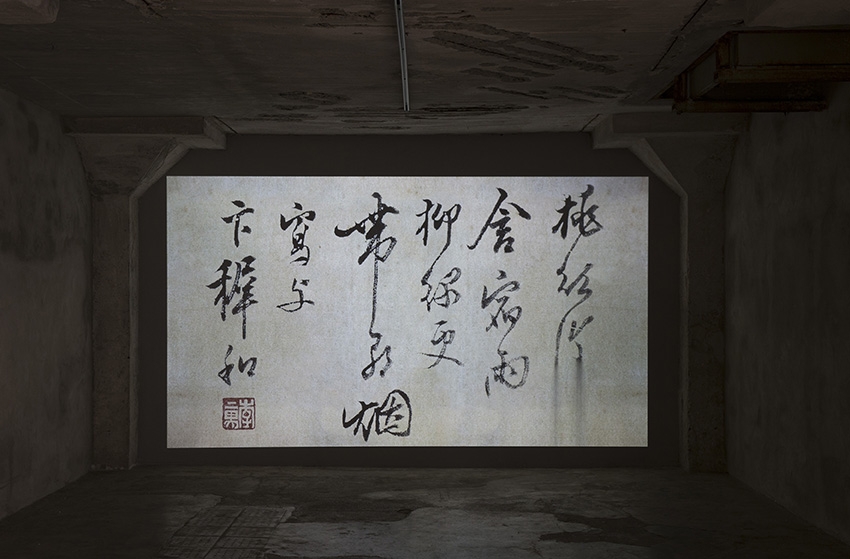 桃紅復
含宿雨
柳綠更
帶朝烟
寫与
卞穉和